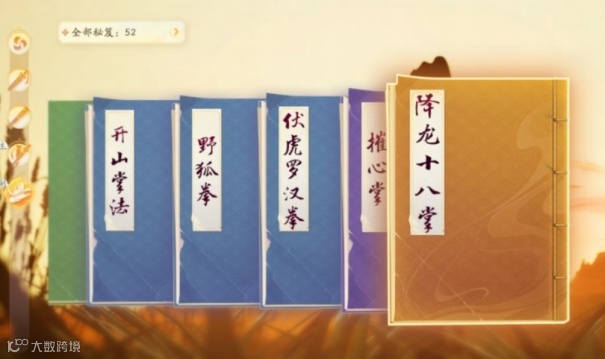 全部秘笈：52
开山掌法
野狐拳
伏虎罗汉拳
摧心掌
降龙十八掌
大数跨境